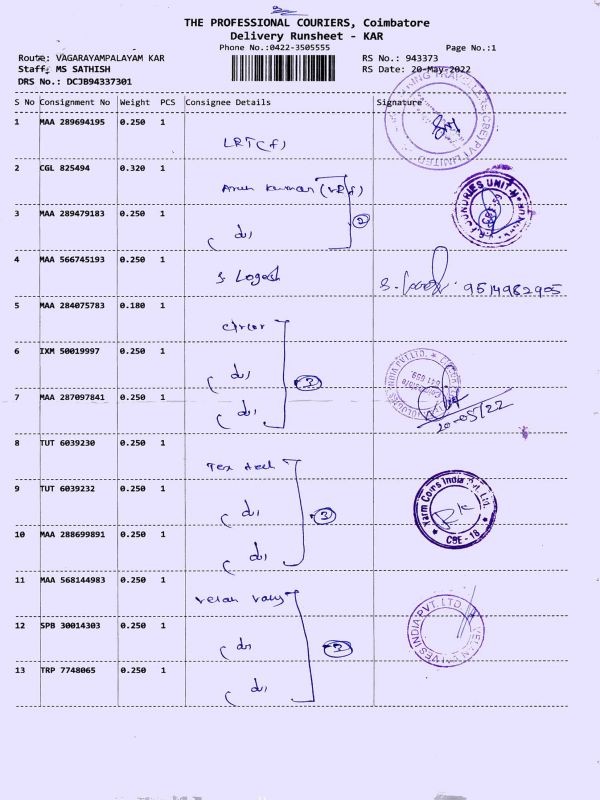 THE PROFESSIONAL COURIERS, Coimbatore
Delivery Runsheet - KAR
Phone No.:0422-3505555
Page No.:1
Route: VAGARAYAMPALAYAM KAR
RS No.: 943373
Staff: MS SATHISH
RS Date: 20-May-2022
DRS No.: DCJB94337301
S No Consignment No Weight PCS Consignee Details Signature
1 MAA 289694195 0.250 1
LRT (f)
2 CGL 825494 0.320 1
3 MAA 289479183 0.250 1
(du) 2
4 MAA 566745193 0.250 1
S Logesh 9514982905
5 MAA 284075783 0.180 1
6 IXM 50019997 0.250 1
(du) 3
7 MAA 287097841 0.250 1
(du) 20-05/22
8 TUT 6039230 0.250 1
9 TUT 6039232 0.250 1
(du) 3
Yarm Coirs India Pvt. Ltd. CBE - 18
10 MAA 288699891 0.250 1
(du)
11 MAA 568144983 0.250 1
12 SPB 30014303 0.250 1
(du) 3
13 TRP 7748065 0.250 1
(du)